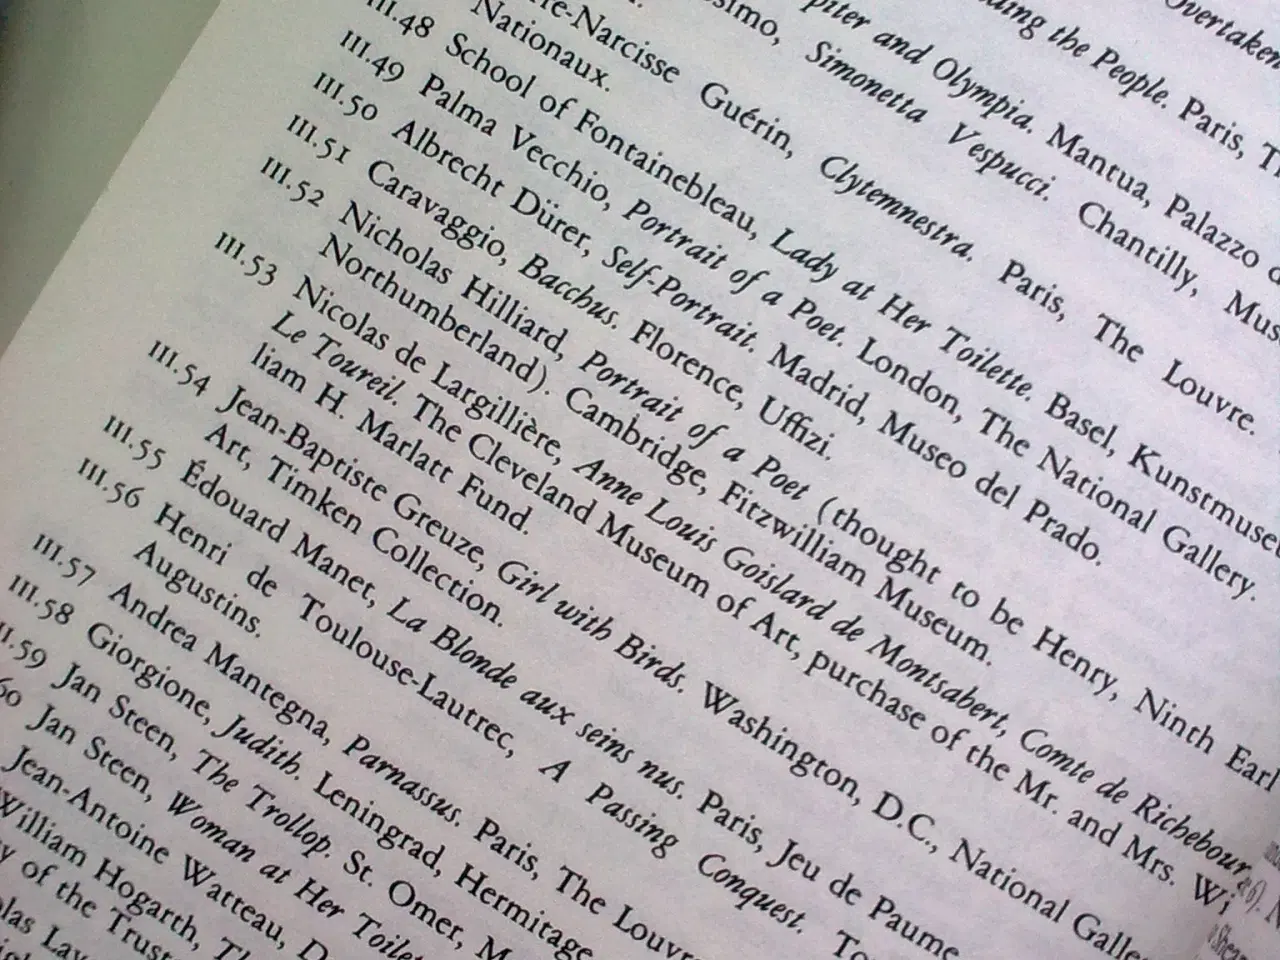 Overtaken
ding the People. Paris,
piter and Olympia. Mantua, Palazzo
simo, Simonetta Vespucci. Chantilly,
re-Narcisse Guérin, Clytemnestra. Paris, The Louvre.
Nationaux.
III.48 School of Fontainebleau, Lady at Her Toilette. Basel,
III.49 Palma Vecchio, Portrait of a Poet. London, The National Gallery.
III.50 Albrecht Dürer, Self-Portrait. Madrid, Museo del Prado.
III.51 Caravaggio, Bacchus. Florence, Uffizi.
III.52 Nicholas Hilliard, Portrait of a Poet (thought to be Henry, Ninth Earl
Northumberland). Cambridge, Fitzwilliam Museum.
III.53 Nicolas de Largillière, Anne Louis Goislard de Montsabert, Comte de Richebour
Le Toureil. The Cleveland Museum of Art, purchase of the Mr. and Mrs. Wi
liam H. Marlatt Fund.
III.54 Jean-Baptiste Greuze, Girl with Birds. Washington, D.C., National Galle
Art, Timken Collection.
III.55 Édouard Manet, La Blonde aux seins nus. Paris, Jeu de Paume
III.56 Henri de Toulouse-Lautrec, A Passing Conquest. To
Augustins.
III.57 Andrea Mantegna, Parnassus. Paris, The Louvr
III.58 Giorgione, Judith. Leningrad, Hermitage
II.59 Jan Steen, The Trollop. St. Omer, M
60 Jan Steen, Woman at Her Toilet
Jean-Antoine Watteau, D
William Hogarth, Th
y of the Trust
olas Lav